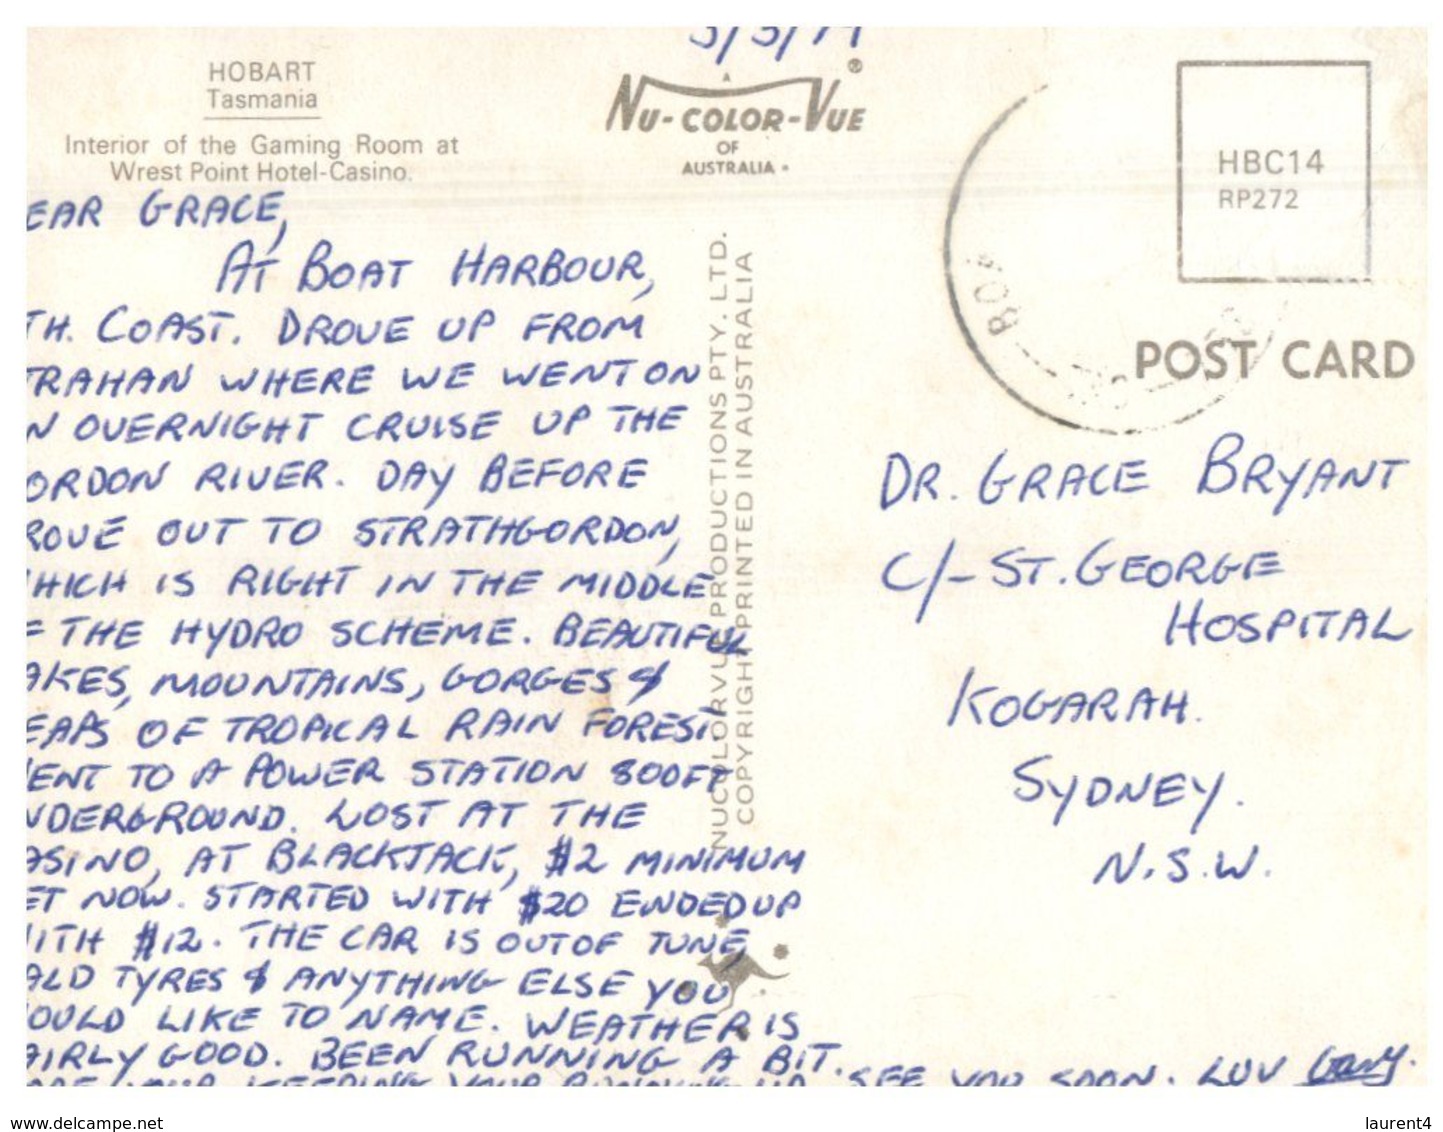 HOBART
Tasmania
Interior of the Gaming Room at
Wrest Point Hotel-Casino.
A
NU-COLOR-VUE ®
OF
AUSTRALIA
HBC14
RP272
POST CARD
EAR GRACE,
AT BOAT HARBOUR,
TH. COAST. DROVE UP FROM
TRAHAN WHERE WE WENT ON
N OVERNIGHT CRUISE UP THE
ORDON RIVER. DAY BEFORE
ROVE OUT TO STRATHGORDON,
HICH IS RIGHT IN THE MIDDLE
F THE HYDRO SCHEME. BEAUTIFUL
AKES, MOUNTAINS, GORGES &
EAPS OF TROPICAL RAIN FOREST
ENT TO A POWER STATION 800FT
NDERGROUND. LOST AT THE
ASINO, AT BLACKJACK, $2 MINIMUM
ET NOW. STARTED WITH $20 ENDED UP
ITH $12. THE CAR IS OUT OF TUNE,
ALD TYRES & ANYTHING ELSE YOU
OULD LIKE TO NAME. WEATHER IS
AIRLY GOOD. BEEN RUNNING A BIT.
YOUR KEEPING YOUR RUNNING UP. SEE YOU SOON. LUV Gary.
NUCOLORVUE PRODUCTIONS PTY. LTD.
COPYRIGHT PRINTED IN AUSTRALIA
DR. GRACE BRYANT
C/- ST. GEORGE
HOSPITAL
KOGARAH.
SYDNEY.
N.S.W.
www.delcampe.net
laurent4